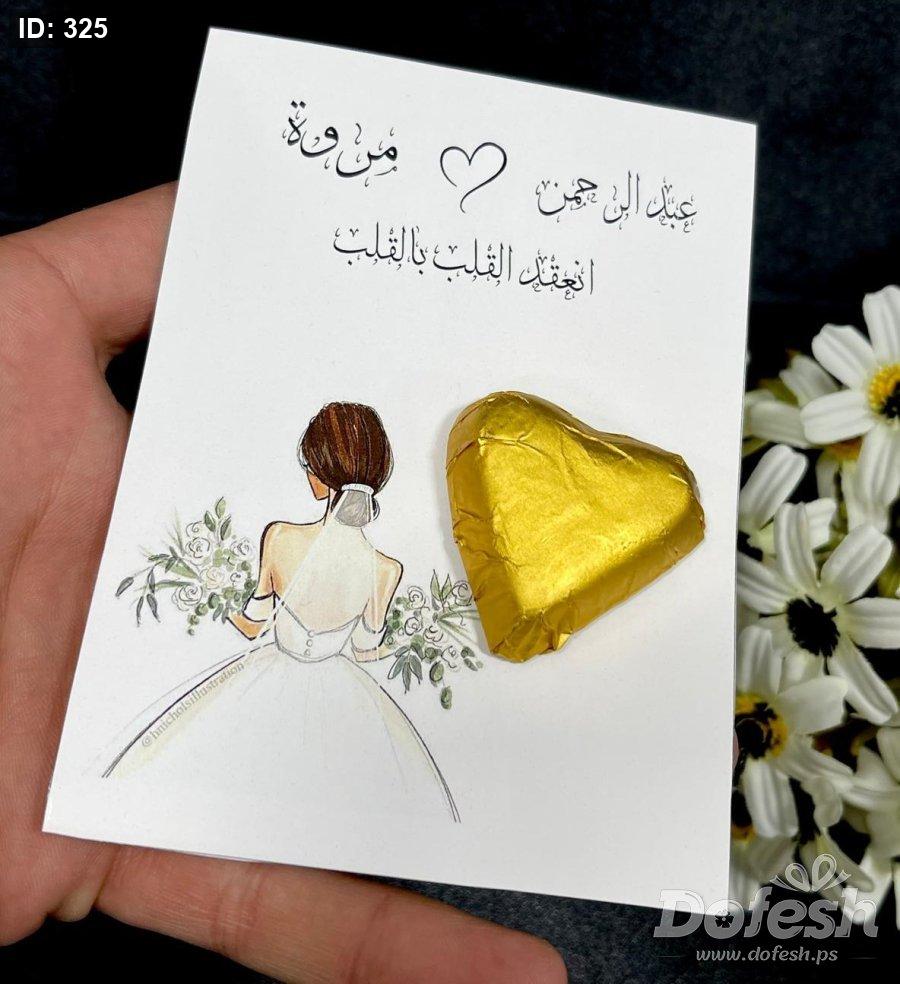 ID: 325
عبد الرحمن ♡ مروة
انعقد القلب بالقلب
@hnicholsillustration
Dofesh
www.dofesh.ps